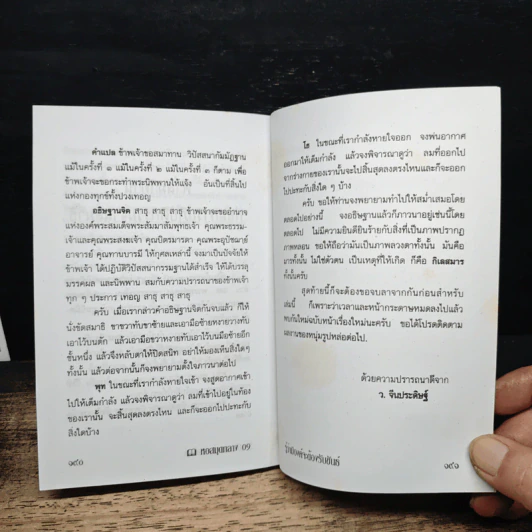 คำแปล ข้าพเจ้าขอสมาทาน วิปัสสนากัมมัฏฐาน
แม้ในครั้งที่ ๑ แม้ในครั้งที่ ๒ แม้ในครั้งที่ ๓ ก็ตาม เพื่อ
ข้าพเจ้าจะขอกระทำพระนิพพานให้แจ้ง อันเป็นที่สิ้นไป
แห่งกองทุกข์ทั้งปวงเทอญ
อธิษฐานจิต สาธุ สาธุ สาธุ ข้าพเจ้าจะขออำนาจ
แห่งองค์พระสมเด็จพระสัมมาสัมพุทธเจ้า คุณพระธรรม-
เจ้าและคุณพระสงฆเจ้า คุณบิดรมารดา คุณพระอุปัชฌาย์
อาจารย์ คุณทานบารมี ให้กุศลเหล่านี้ จงมาเป็นปัจจัยให้
ข้าพเจ้า ได้ปฏิบัติวิปัสสนากรรมฐานได้สำเร็จ ให้ได้บรรลุ
มรรคผล และนิพพาน สมกับความปรารถนาของข้าพเจ้า
ทุก ๆ ประการ เทอญ สาธุ สาธุ สาธุ
ครับ เมื่อเรากล่าวคำอธิษฐานจิตกันจบแล้ว ก็ให้
นั่งขัดสมาธิ ขาขวาทับขาซ้ายและเอามือซ้ายหงายวางทับ
เอาไว้บนตัก แล้วเอามือขวาหงายทับเอาไว้บนมือซ้ายอีก
ชั้นหนึ่ง แล้วจึงหลับตาให้ปิดสนิท อย่าให้มองเห็นสิ่งใดๆ
ทั้งนั้น แล้วต่อจากนั้นก็จงพยายามตั้งใจภาวนาต่อไป
พุท ในขณะที่เรากำลังหายใจเข้า จงสูดอากาศเข้า
ไปให้เต็มกำลัง แล้วจงพิจารณาดูว่า ลมที่เข้าไปอยู่ในท้อง
ของเรานั้น จะสิ้นสุดลงตรงไหน และก็จะออกไปปะทะกับ
สิ่งใดบ้าง
๑๙๐
หอสมุดกลาง 09
โธ ในขณะที่เรากำลังหายใจออก จงพ่นอากาศ
ออกมาให้เต็มกำลัง แล้วจงพิจารณาดูว่า ลมที่ออกไป
จากร่างกายของเรานั้นจะไปสิ้นสุดลงตรงไหนและก็จะออก
ไปปะทะกับสิ่งใด ๆ บ้าง
ครับ ขอให้ท่านจงพยายามทำไปให้สม่ำเสมอโดย
ตลอดไปอย่างนี้ จงอธิษฐานแล้วก็ภาวนาอยู่เช่นนี้โดย
ตลอดไป ไม่มีความยินดียินร้ายกับสิ่งที่เป็นภาพปรากฏ
ภาพหลอน ขอให้ถือว่ามันเป็นภาพลวงตาทั้งนั้น มันคือ
มารทั้งนั้น ไม่ใช่ตัวตน เป็นเหตุที่ให้เกิด ก็คือ กิเลสมาร
ทั้งนั้นครับ
สุดท้ายนี้ก็จะต้องขอจบลาจากกันก่อนสำหรับ
เล่มนี้ ก็เพราะว่าเวลาและหน้ากระดาษหมดลงไปแล้ว
พบกันใหม่ฉบับหน้าเรื่องใหม่นะครับ ขอได้โปรดติดตาม
ผลงานของหนุ่มรูปหล่อต่อไป.
ด้วยความปรารถนาดีจาก
ว. จีนประดิษฐ์
๑๙๑